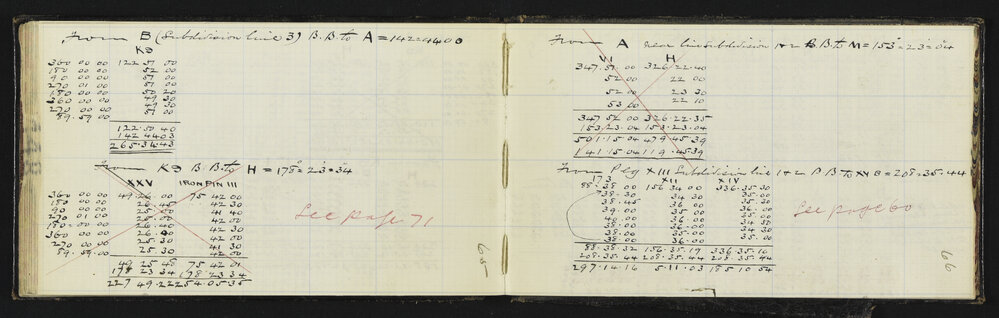 From B (Subdivision line 3) B.B. to A = 142=4400
KD
360 00 00 122 51 00
180 00 00 52 00
90 00 00 51 00
270 01 00 51 00
180 00 00 50 20
360 00 00 49 30
270 00 00 49 30
89.59 00 51 00
122.50.40
142 4403
265.34.43
From KD B.B. to H = 178°=23=34
XXV IRON PIN III
360 00 00 49.26.00 75 42 00
180 00 00 26.45 42 30
90 00 00 25.00 41 40
270 01 00 26.00 42 00
180.00.00 26.00 42 30
360 00 00 26.00 42 30
270 00 00 25 30 41 30
89.59.00 25.30 42 00
49 25 48 75 42 01
178 23 34 178 23 34
227 49.22 254.05.35
See page 71
65
From A near line subdivision 1+2 B.B to M = 153°=23=04
VI H
347.51.00 326.22.40
52 00 22 00
52 00 23 30
53 00 22 10
347 52 00 326.22.35
153.23.04 153.23.04
501.15.04 479.45.39
141.15.04 119.45.39
From Peg XIII Subdivision line 1+2 B.B to XVB = 208=35=44
173 XII XIV
88.38.00 156 34 00 336.35.30
38.30 34 30 35 00
38.45 36 00 35.30
39 00 35 00 36.00
40 00 34 00 35 00
38 00 36.00 34 30
39.00 35.00 35 00
38 00 36.00 35.00
88.38.32 156.35.19 336.35.10
208.35.44 208.35.44 208.35.44
297.14.16 5.11.03 185 10 54
See page 60
66